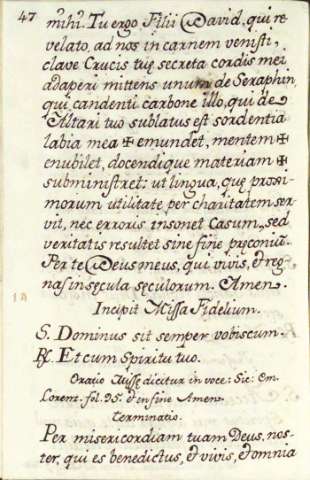 47
mihi. Tu ergo Filii David, qui re
velato, ad nos in carnem venisti,
clave Crucis tuę secreta cordis mei
adaperi mittens unum de Seraphin
qui candenti carbone illo, qui de
Altari tuo sublatus est sordentia
labia mea ✠ emundet, mentem ✠
enubilet, docendique materiam ✠
subministret: ut lingua, quę proxi-
morum utilitate per charitatem ser-
vit, nec erroris insonet Casum, sed
veritatis resultet sine fine pręconiũ.
Per te Deus meus, qui vivis, et reg-
nas in sęcula sęculorum. Amen.
Incipit Missa Fidelium.
S. Dominus sit semper vobiscum.
℟. Et cum Spiritu tuo.
Oratio Missę dicitur in voce: Sic: Em.
Lorenz. fol. 95. et in fine Amen
Terminatio.
Per misericordiam tuam Deus, nos-
ter, qui es benedictus, et vivis, et omnia